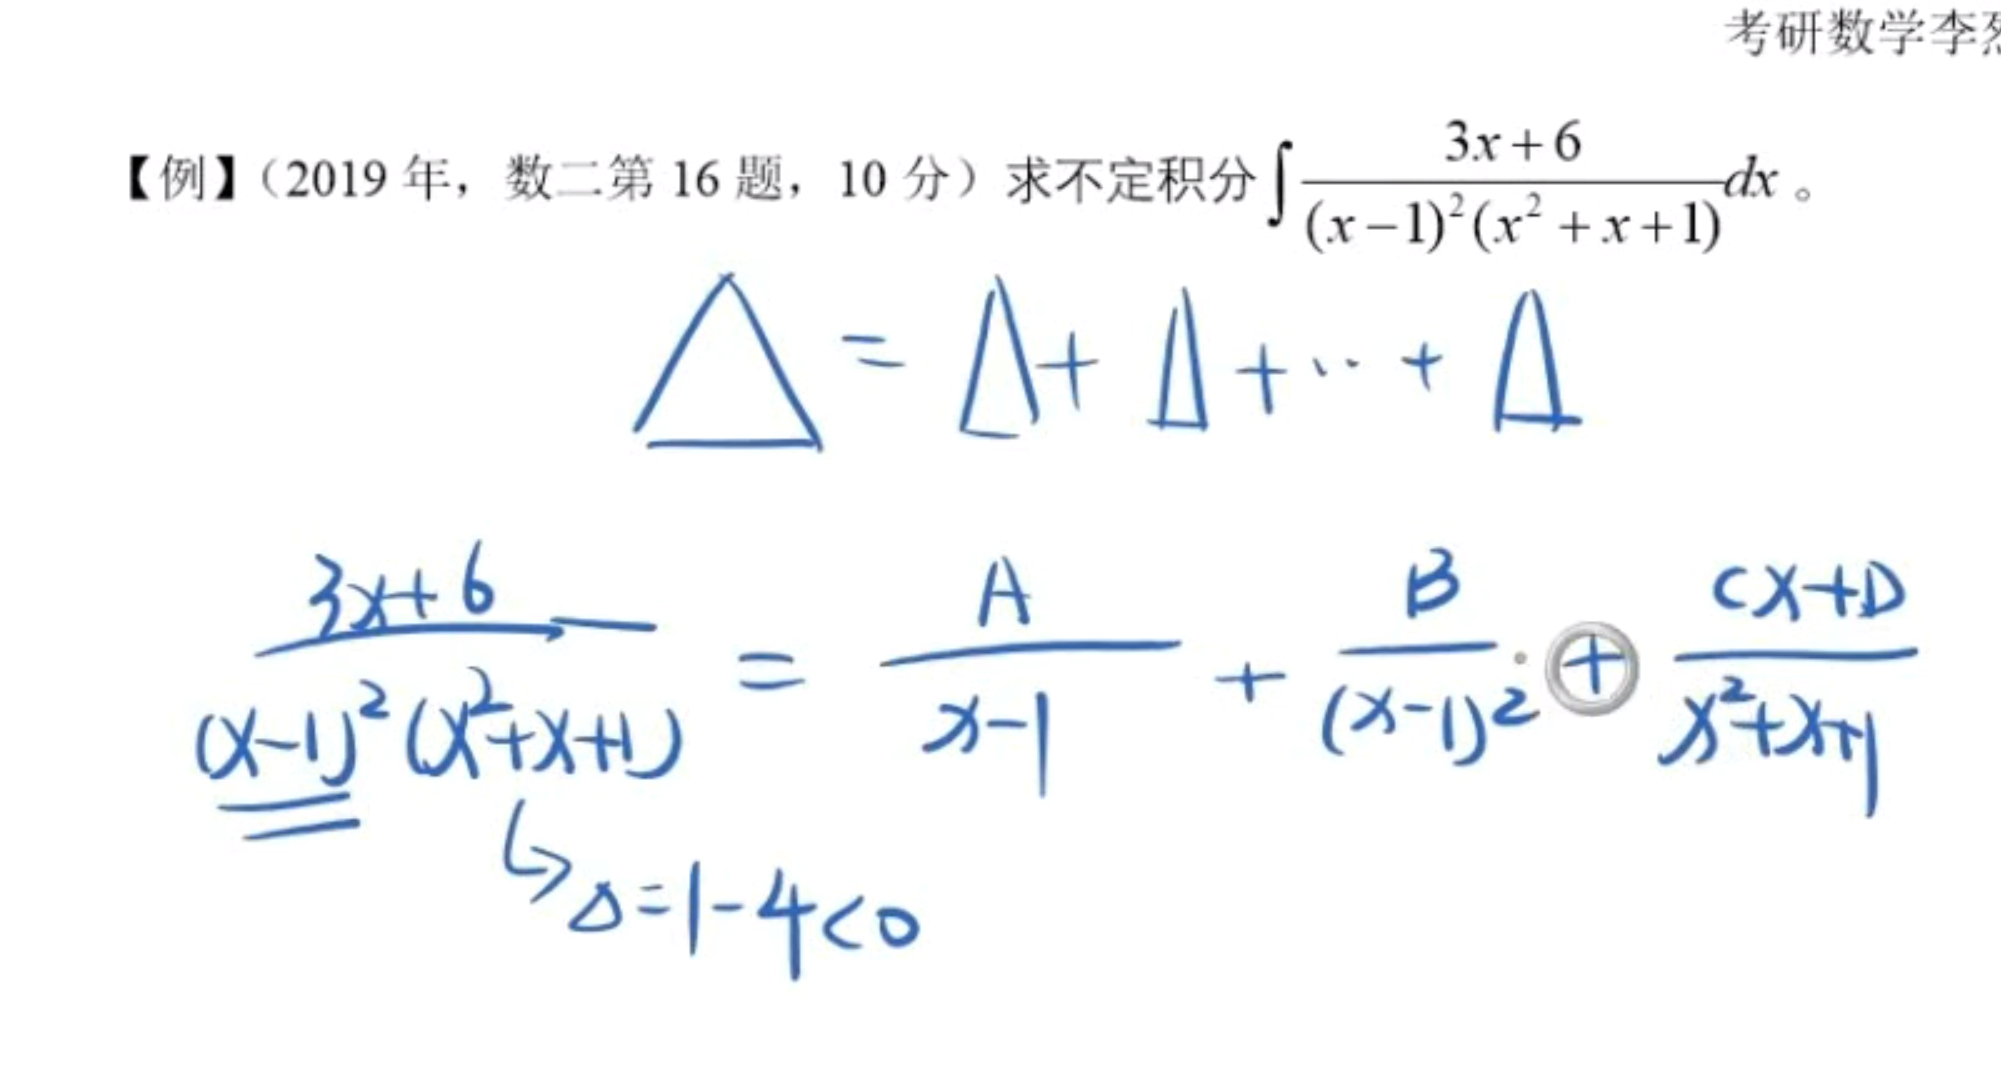 考研数学李
【例】（2019 年，数二第 16 题，10 分）求不定积分∫ (3x+6)/((x−1)²(x²+x+1)) dx 。
△ = △ + △ + ·· + △
(3x+6)/((x−1)²(x²+x+1)) = A/(x−1) + B/(x−1)² + (Cx+D)/(x²+x+1)
↳ Δ=1−4<0